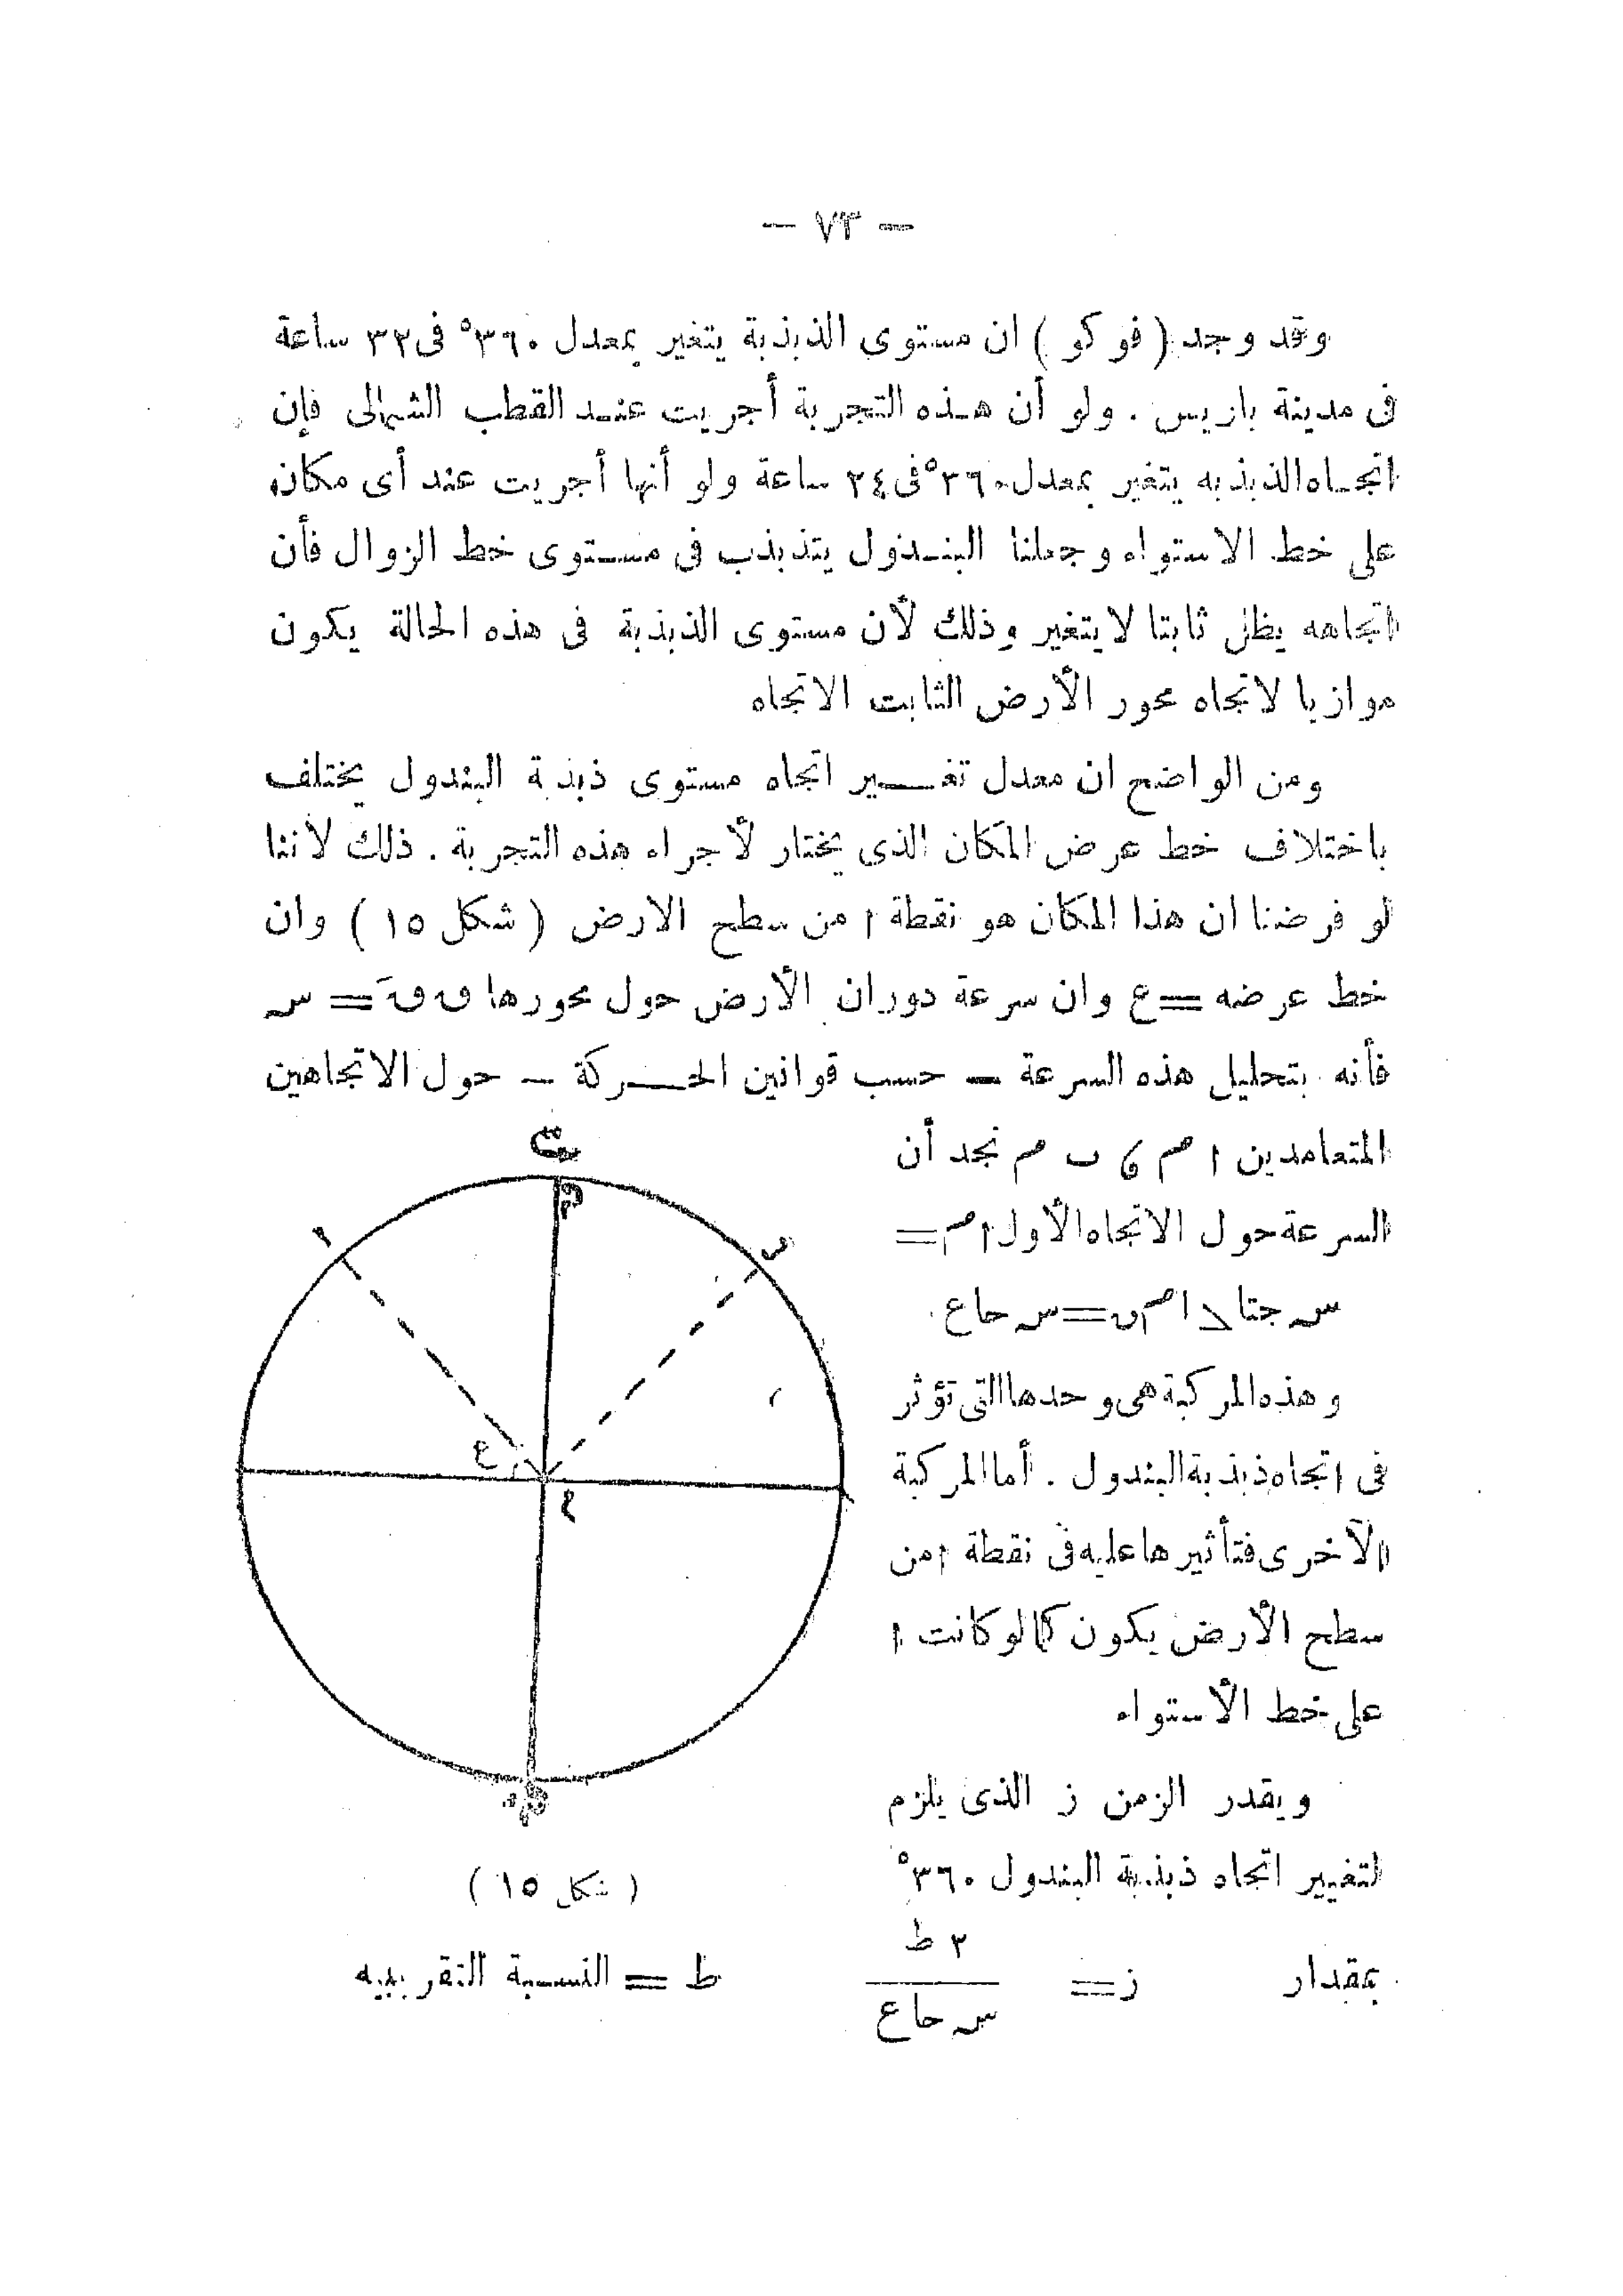 — ٧٣ —
وقد وجد (فوكو) ان مستوى الذبذبة يتغير بمعدل ٣٦٠° فى ٣٢ ساعة
فى مدينة باريس . ولو أن هذه التجربة أجريت عند القطب الشمالى فإن
اتجاه الذبذبه يتغير بمعدل ٣٦٠° فى ٢٤ ساعة ولو أنها أجريت عند أى مكان
على خط الاستواء وجعلنا البندول يتذبذب فى مستوى خط الزوال فأن
اتجاهه يظل ثابتا لا يتغير وذلك لأن مستوى الذبذبة فى هذه الحالة يكون
موازيا لاتجاه محور الأرض الثابت الاتجاه
ومن الواضح ان معدل تغير اتجاه مستوى ذبذبة البندول يختلف
باختلاف خط عرض المكان الذى يختار لأجراء هذه التجربة . ذلك لأننا
لو فرضنا ان هذا المكان هو نقطة ا من سطح الارض (شكل ١٥) وان
خط عرضه = ع وان سرعة دوران الأرض حول محورها ق قَ = س
فأنه بتحليل هذه السرعة — حسب قوانين الحركة — حول الاتجاهين
المتعامدين ا م ، ب م نجد أن
السرعة حول الاتجاه الأول ا م =
س جتا > ا م ق = س حا ع .
وهذه المركبة هى وحدها التى تؤثر
فى اتجاه ذبذبة البندول . أما المركبة
الآخرى فتأثيرها عليه فى نقطة ا من
سطح الأرض يكون كما لو كانت ا
على خط الأستواء
ويقدر الزمن ز الذى يلزم
لتغيير اتجاه ذبذبة البندول ٣٦٠°
بمقدار ز = ٢ ط / س حا ع ط = النسبة التقريبيه
ا
ب
ع
م
(شكل ١٥)